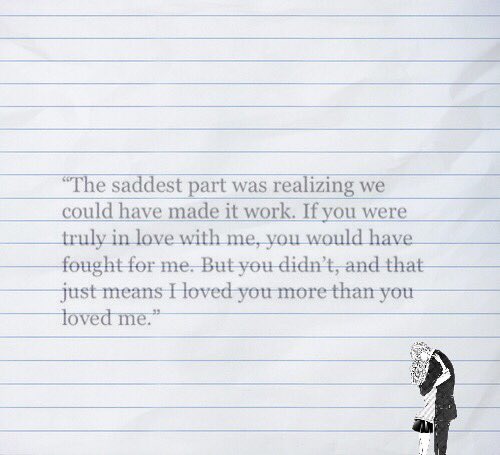 “The saddest part was realizing we
could have made it work. If you were
truly in love with me, you would have
fought for me. But you didn’t, and that
just means I loved you more than you
loved me.”